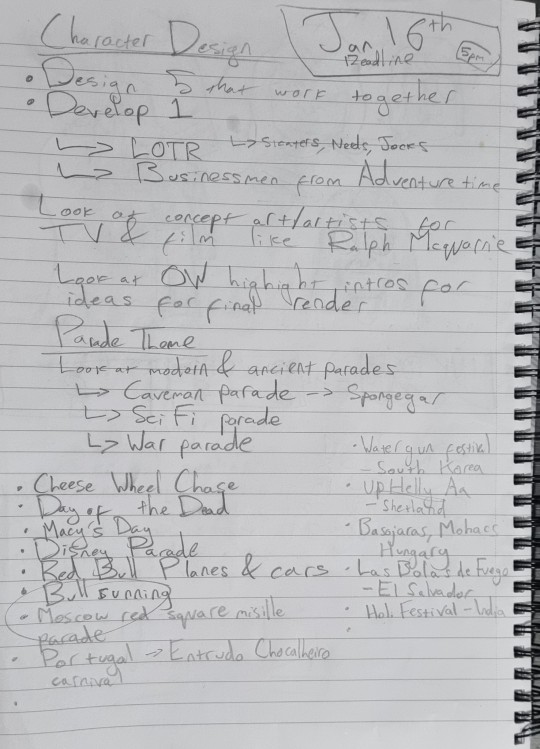 Character Design
Jan 16th
Deadline
5pm
• Design 5 that work together
• Develop 1
↳ LOTR ↳ Skaters, Nerds, Jocks
↳ Businessmen from Adventure time
Look at concept art/artists for
TV & film like Ralph Mcquarrie
Look at OW highight intros for
ideas for final render
Parade Theme
Look at modern & ancient parades
↳ Caveman parade → Spongegar
↳ Sci Fi parade
↳ War parade
• Cheese Wheel Chase
• Day of the Dead
• Macy's Day
• Disney Parade
• Red Bull Planes & cars
• Bull running
• Moscow red square misille
parade
• Portugal → Entrudo Chocalheiro
carnival
• Water gun festival
- South Korea
• Up Helly Aa
- Shetland
• Busojaras, Mohacs
Hungary
• Las Bolas de Fuego
- El Salvador
• Holi Festival - India